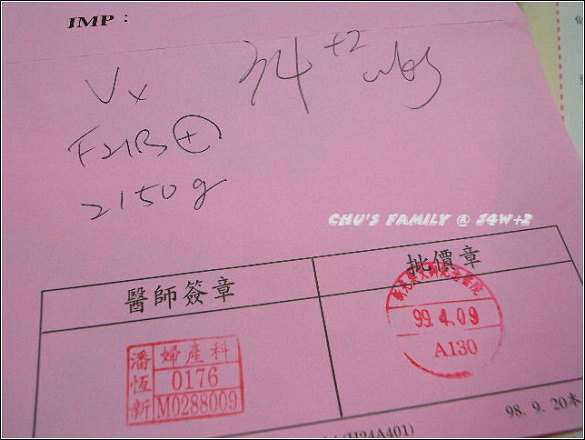 IMP :
Vx 34+2 wks
FHB +
2150 g
CHU'S FAMILY @ 34W+2
醫師簽章 批價章
潘恆新 婦產科
0176
M0288009
99.4.09
A130
98. 9. 20本
(H24A401)